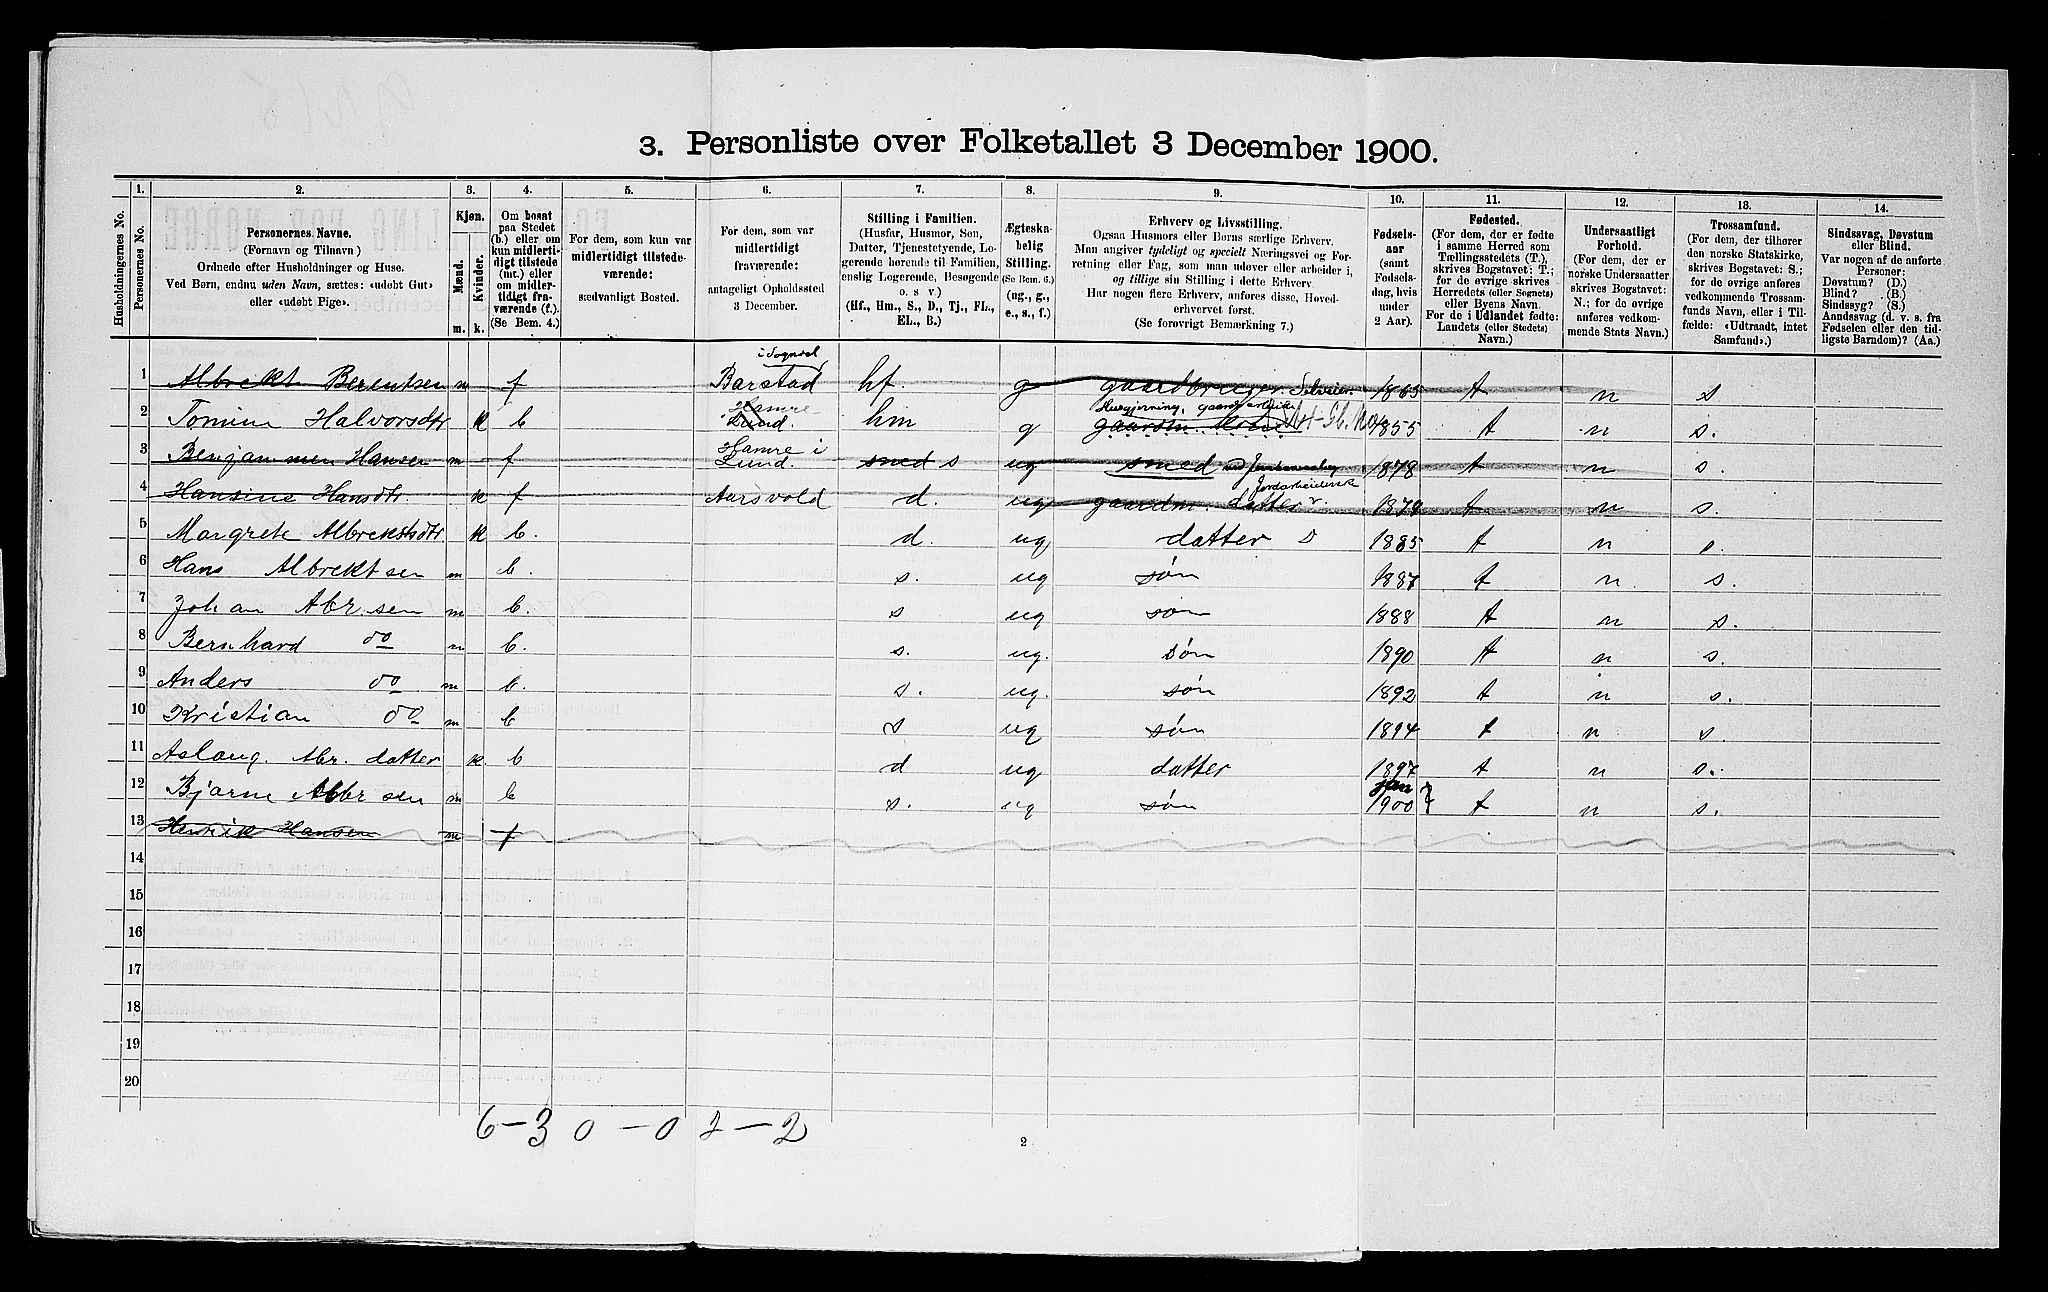 3. Personliste over Folketallet 3 December 1900.
Husholdningernes No.
1.
Personernes No.
2.
Personernes Navne.
(Fornavn og Tilnavn)
Ordnede efter Husholdninger og Huse.
Ved Børn, endnu uden Navn, sættes: «udøbt Gut»
eller «udøbt Pige».
3.
Kjøn.
Mænd.
Kvinder.
m.
k.
4.
Om bosat
paa Stedet
(b.) eller om
kun midlerti-
digt tilstede
(mt.) eller
om midler-
tidigt fra-
værende (f.)
(Se Bem. 4.)
5.
For dem, som kun var
midlertidigt tilstede-
værende:
sædvanligt Bosted.
6.
For dem, som var
midlertidigt
fraværende:
antageligt Opholdssted
3 December.
7.
Stilling i Familien.
(Husfar, Husmor, Søn,
Datter, Tjenestetyende, Lo-
gerende hørende til Familien,
enslig Logerende, Besøgende
o. s v.)
(Hf., Hm., S., D., Tj., FL.,
EL., B.)
8.
Ægteska-
belig
Stilling.
(Se Bem. 6.)
(ug., g.,
e., s., f.)
9.
Erhverv og Livsstilling.
Ogsaa Husmors eller Børns særlige Erhverv.
Man angiver tydeligt og specielt Næringsvei og For-
retning eller Fag, som man udøver eller arbeider i,
og tillige sin Stilling i dette Erhverv.
Har nogen flere Erhverv, anføres disse, Hoved-
erhvervet først.
(Se forøvrigt Bemærkning 7.)
10.
Fødsels-
aar
(samt
Fødsels-
dag, hvis
under
2 Aar).
11.
Fødested.
(For dem, der er fødte
i samme Herred som
Tællingsstedets (T.),
skrives Bogstavet: T.;
for de øvrige skrives
Herredets (eller Sognets)
eller Byens Navn.
For de i Udlandet fødte:
Landets (eller Stedets)
Navn.)
12.
Undersaatligt
Forhold.
(For dem, der er
norske Undersaatter
skrives Bogstavet:
N.; for de øvrige
anføres vedkom-
mende Stats Navn.)
13.
Trossamfund.
(For dem, der tilhører
den norske Statskirke,
skrives Bogstavet: S.;
for de øvrige anføres
vedkommende Trossam-
funds Navn, eller i Til-
fælde: «Udtraadt, intet
Samfund».)
14.
Sindssvag, Døvstum
eller Blind.
Var nogen af de anførte
Personer:
Døvstum? (D.)
Blind? (B.)
Sindssyg? (S.)
Aandssvag (d. v. s. fra
Fødselen eller den tid-
ligste Barndom)? (Aa.)
1 Albrekt Berentsen m f i Sogndal Barstad hf. g gaardbruger Selveier 1865 t n s
2 Tomine Halvorsdtr k b Lund. hm g 1855 t n s.
3 Benjammen Hansen m f Hamre i Lund. smed s ug smed 1878 t n s.
4 Hansine Hansdtr. k f Aarsvold d. ug gaardm. datter 1879 t n s.
5 Margrete Albrektsdtr k b. d. ug datter D 1885 t n s.
6 Hans Albrektsen m b. s. ug søn 1887 t n. s.
7 Johan Abr. sen m b. s ug søn 1888 t n s.
8 Bernhard do m b. s. ug. søn 1890 t n s.
9 Anders do m b. s. ug. søn 1892 t n s.
10 Kristian do m b s ug søn 1894 t n s.
11 Aslaug. Abr. datter k b d ug datter 1897 t n s.
12 Bjarne Albr sen m b s. ug søn jan 1900 t n s.
13 Henrik Hansen m f
14
15
16
17
18
19
20
6-3 0-0 2-2
2